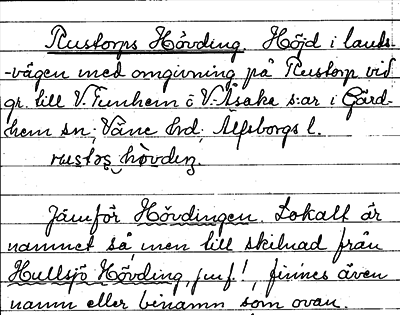 Rustorps Hövding. Höjd i lands-
-vägen med omgivning på Rustorp vid
gr. till V. Tunhem o V. Åsaka s:ar i Gärd-
hem sn; Väne hd; Älfsborgs l.
rustǫs hövdiŋ.
Jämför Hövdingen. Lokalt är
namnet så, men till skilnad från
Hullsjö Hövding, jmf!, finnes även
namn eller binamn som ovan.